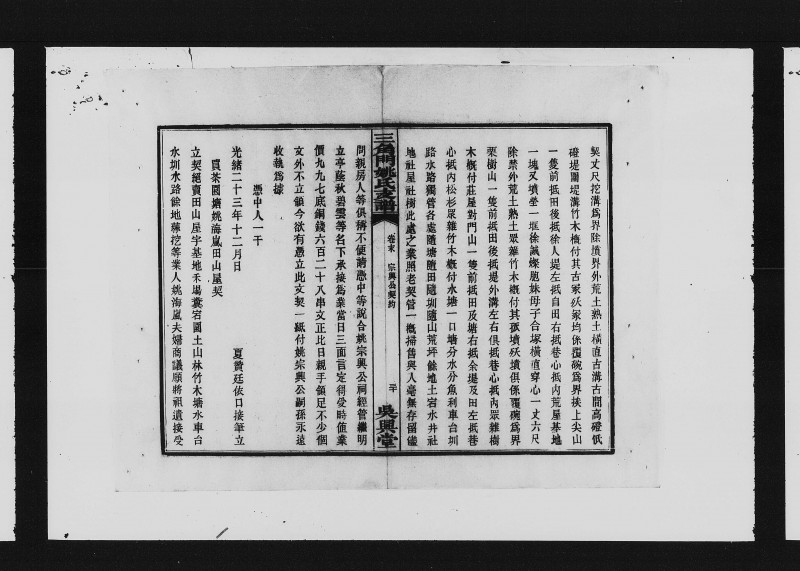 契丈尺挖溝爲界除墳界外荒土熟土橫直古溝古閣高磴低
磴堤關堤溝竹木槪付其古冢妖冢均係覆碗爲界挨上尖山
一隻前抵田後抵徐人堤左抵自田右抵巷心抵內荒屋基地
一塊又墳塋一堆徐誠燦胞妹母子合塚橫直穿心一丈六尺
除禁外荒土熟土眾雜竹木槪付其孤墳妖墳俱係覆碗爲界
栗樹山一隻前抵田後抵堤外溝左右俱抵巷心抵內眾雜樹
木槪付莊屋對門山一隻前抵田及塘右抵余堤及田左抵巷
心抵內松杉眾雜竹木槪付水塘一口塘分水分魚利車台圳
路水路獨管各處隨塘隨田隨圳隨山荒坪餘地土宕水井社
地社屋社樹此處之業照老契管一槪掃售與人毫無存留儘
三角門姚氏支譜
卷末
宗興公契約
二十
吳興堂
問親房人等俱稱不便請憑中等說合姚宗興公祠經管繼明
立亭蔭秋碧雲等名下承接爲業當日三面言定得受時值業
價九九七底銅錢六百二十八串文正比日親手領足不少個
文外不立領今欲有憑立此文契一紙付姚宗興公嗣孫永遠
收執爲據
憑中人一干
光緒二十三年十二月日
夏贊廷依口接筆立
買茶園塘姚海嵐田山屋契
立契絕賣田山屋宇基地禾場糞宕園土山林竹木塘水車台
水圳水路餘地蓀挖等業人姚海嵐夫婦商議願將祖遺接受